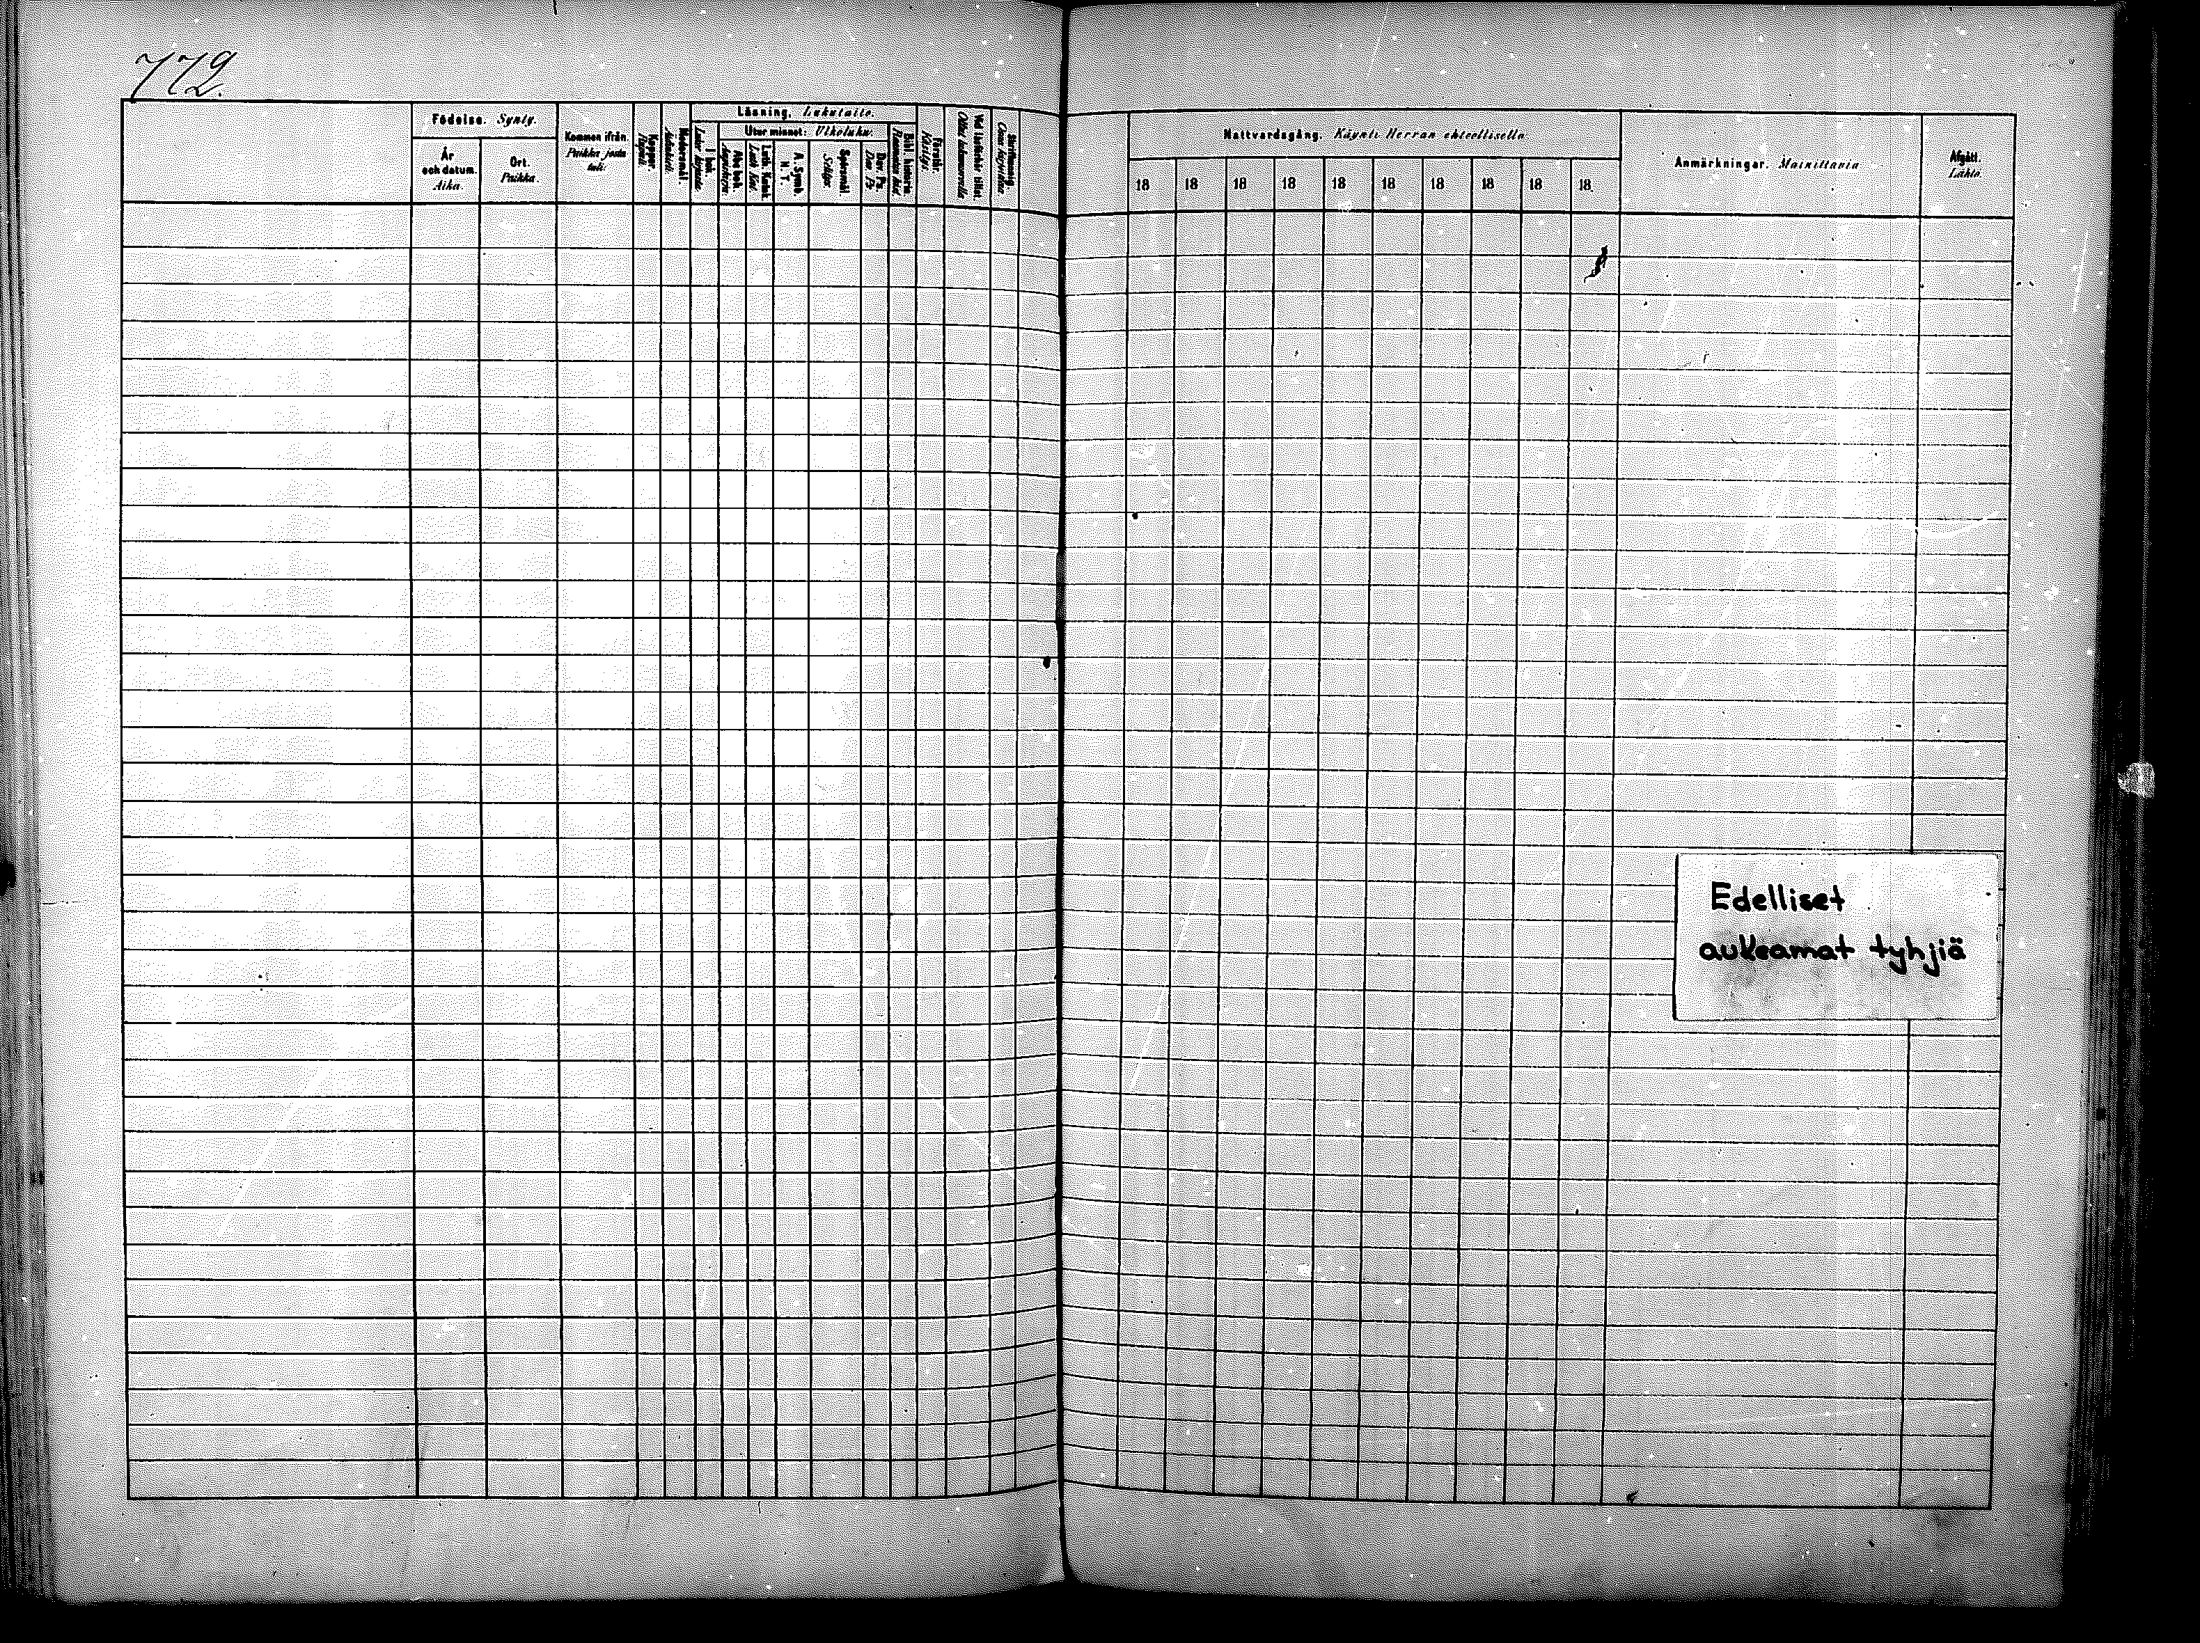 772.
Födelse. Synty.
År
och datum.
Aika.
Ort.
Paikka.
Kommen ifrån.
Paikka josta
tuli.
Koppor.
Rupuli.
Modersmål.
Äidinkieli.
Läsning. Lukutaito.
I bok.
Luku kirjasta.
Utur minnet: Ulkoluku.
Abc bok.
Aapiskirja.
Luth. Katek.
Luth. Kat.
A. Symb.
N. T.
Spörsmål.
Dav. Ps.
Dav. Ps.
Bibl. historia.
Förstår.
Käsitys.
Vid läsförhör tillst.
Ollut lukuluvuilla
Skriftmenig.
Nattvardsgång. Käynti Herran ehtoollisella.
18 18 18 18 18 18 18 18 18 18.
Anmärkningar. Mainittavia.
Afgått.
Lähtö.
Edelliset
aukeamat tyhjiä